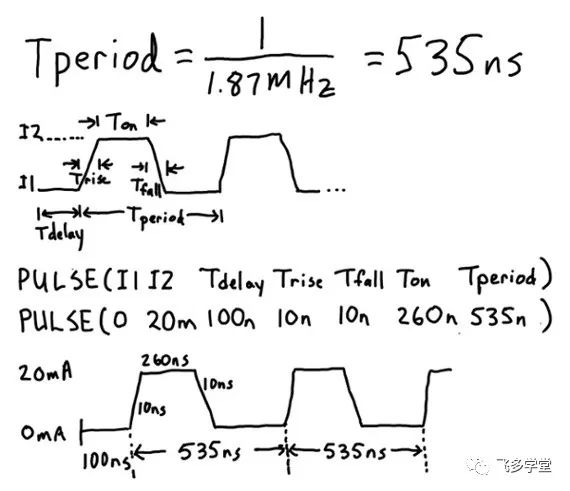 Tperiod = 1 / 1.87MHz = 535ns
I2...... Ton
I1 Trise Tfall ...
Tdelay Tperiod
PULSE(I1 I2 Tdelay Trise Tfall Ton Tperiod)
PULSE(0 20m 100n 10n 10n 260n 535n)
260ns
20mA 10ns
10ns
0mA
100ns 535ns 535ns
飞多学堂